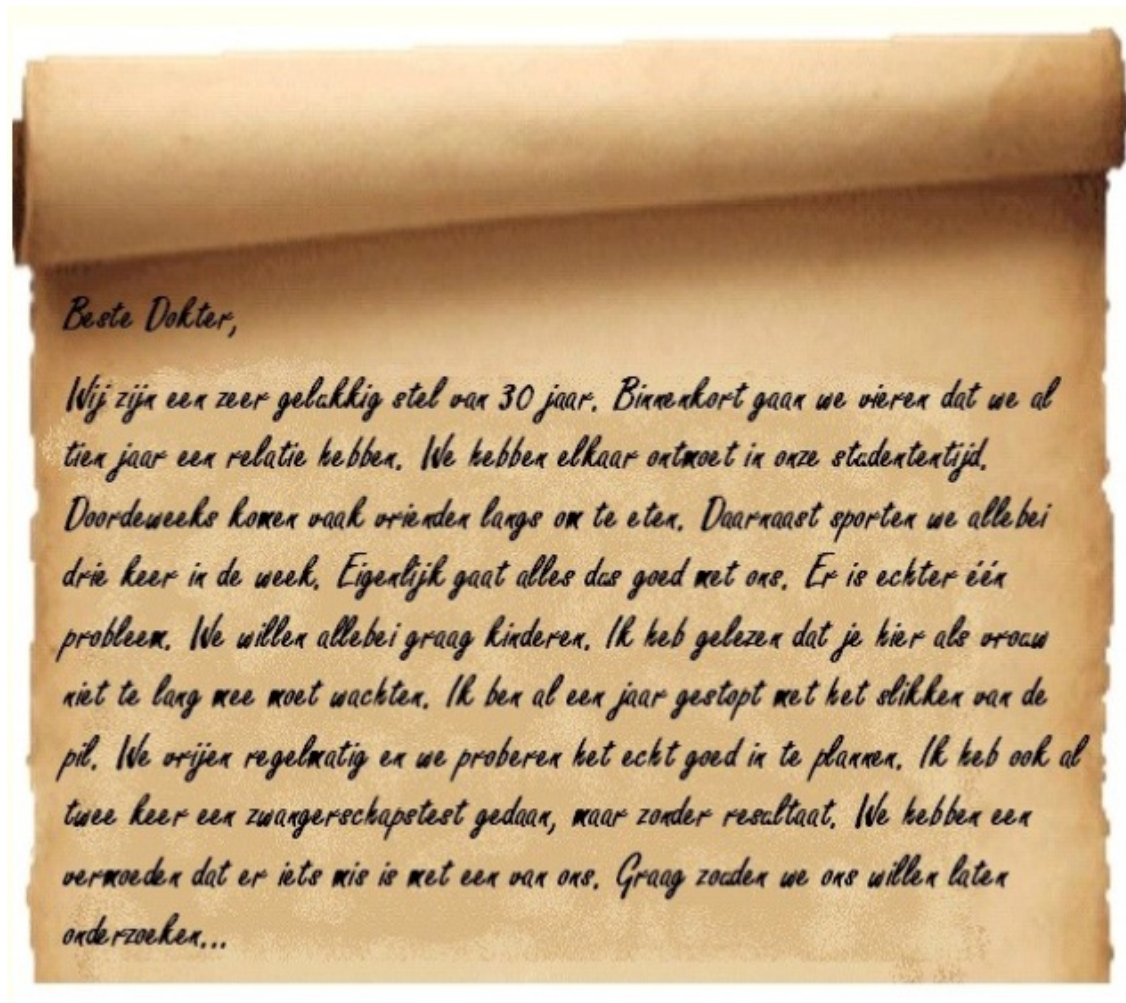 Beste Dokter,
Wij zijn een zeer gelukkig stel van 30 jaar. Binnenkort gaan we vieren dat we al
tien jaar een relatie hebben. We hebben elkaar ontmoet in onze studententijd.
Doordeweeks komen vaak vrienden langs om te eten. Daarnaast sporten we allebei
drie keer in de week. Eigenlijk gaat alles dus goed met ons. Er is echter één
probleem. We willen allebei graag kinderen. Ik heb gelezen dat je hier als vrouw
niet te lang mee moet wachten. Ik ben al een jaar gestopt met het slikken van de
pil. We vrijen regelmatig en we proberen het echt goed in te plannen. Ik heb ook al
twee keer een zwangerschapstest gedaan, maar zonder resultaat. We hebben een
vermoeden dat er iets mis is met een van ons. Graag zouden we ons willen laten
onderzoeken...